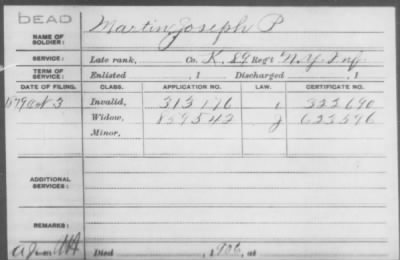 DEAD
NAME OF SOLDIER: Martin, Joseph P
SERVICE: Late rank, Co. K, 89 Reg't N.Y. Inf.
TERM OF SERVICE: Enlisted , 1 Discharged , 1
DATE OF FILING. CLASS. APPLICATION NO. LAW. CERTIFICATE NO.
1879 Oct 3 Invalid, 313,176 322,690
Widow, 859,542 623,596
Minor,
ADDITIONAL SERVICES:
REMARKS:
Died , 1906, at